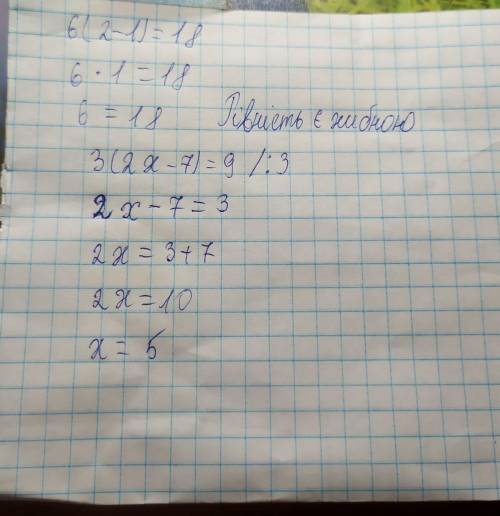 6(2-1)=18
6 · 1 = 18
6 = 18 Рівність є хибною
3(2x-7)=9 /:3
2x-7=3
2x = 3+7
2x=10
x = 5